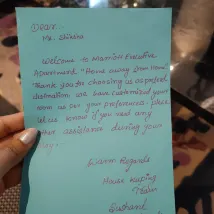 Dear...
Mr. Shiksha
Welcome to Marriott Executive
Apartment "Home away from Home"
Thank you for choosing us as prefect
distination we have customized your
room as per your preferences. please
let us know if you need any
other assistance during your
Warm Regards
House Keeping
Team
Sushant